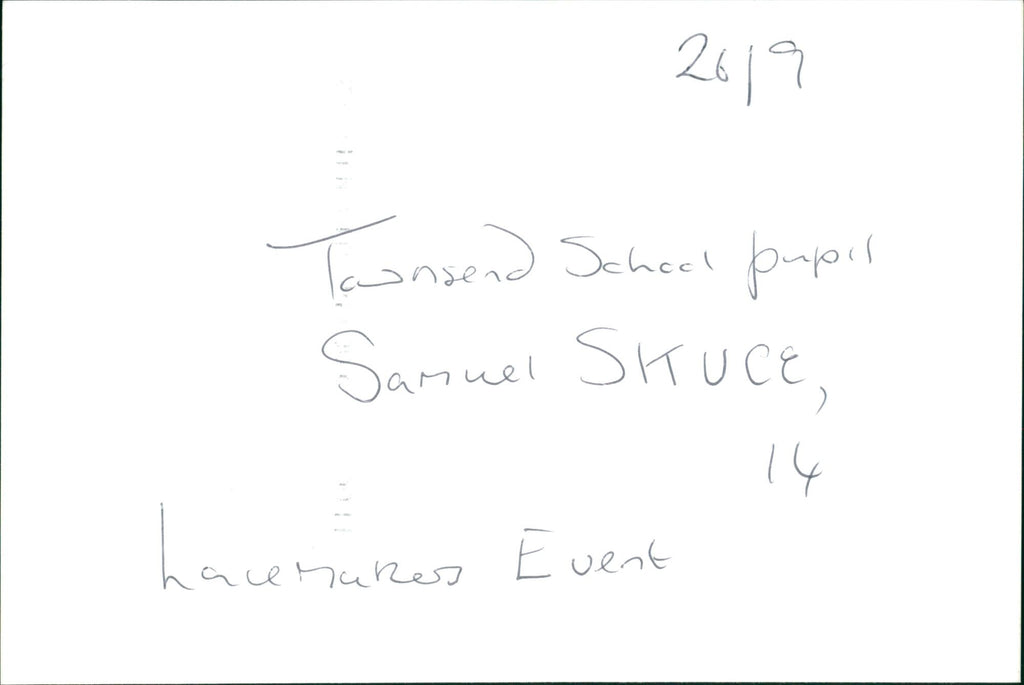 26/9
Townsend School pupil
Samuel SKUCE,
14
Lacemakers Event